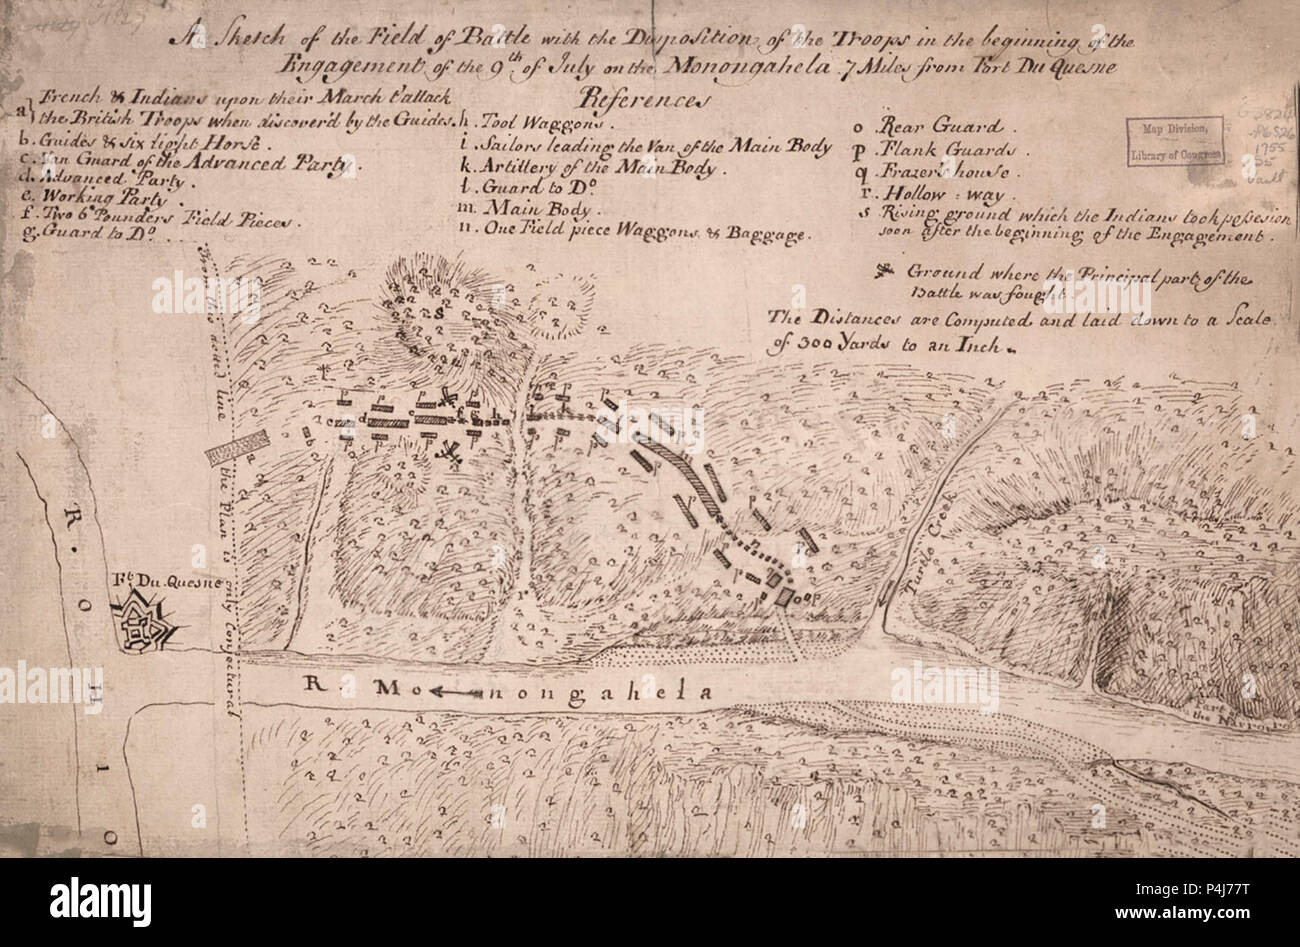 A Sketch of the Field of Battle with the Disposition of the Troops in the beginning of the
Engagement of the 9th of July on the Monongahela 7 Miles from Fort Du Quesne
References
a} French & Indians upon their March t'attack
the British Troops when discover'd by the Guides.
b. Guides & six light Horse.
c. Van Guard of the Advanced Party.
d. Advanced Party.
e. Working Party.
f. Two 6 Pounders Field Pieces.
g. Guard to Do.
h. Tool Waggons.
i. Sailors leading the Van of the Main Body
k. Artillery of the Main Body.
l. Guard to Do.
m. Main Body.
n. One Field piece Waggons & Baggage.
o Rear Guard.
p Flank Guards.
q Frazer's house.
r. Hollow=way.
s Rising ground which the Indians took possesion
soon after the beginning of the Engagement.
Ground where the Principal part of the
Battle was fought.
The Distances are Computed and laid down to a Scale
of 300 Yards to an Inch.
Map Division,
Library of Congress
1755
vault
From this dotted line the Plan is only Conjectural
Ft. Du Quesne
R. OHIO
R. Monongahela
Turtle Creek
Part
the Narrows
alamy
Image ID: P4J77T
www.alamy.com